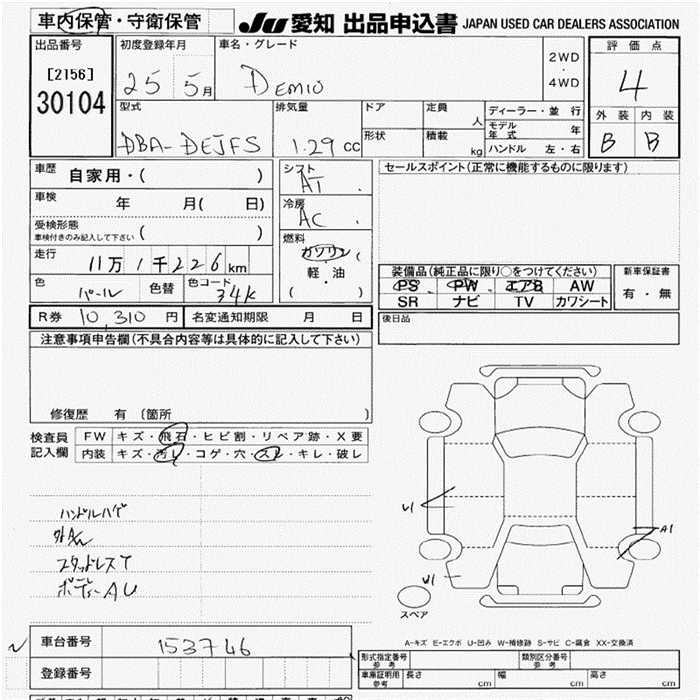 車内保管・守衛保管 JU 愛知 出品申込書 JAPAN USED CAR DEALERS ASSOCIATION
出品番号 初度登録年月 車名・グレード 評価点
[2156] 25 5月 DEMIO 2WD・4WD 4
30104
型式 排気量 ドア 定員 人 ディーラー・並行 外装 内装
DBA-DEJFS 1.29cc 形状 積載 kg モデル年式 年 B B
ハンドル 左・右
車歴 自家用・( ) シフト AT セールスポイント(正常に機能するものに限ります)
車検 年 月( 日) 冷房 AC
受検形態
車検付きのみ記入して下さい ( )
燃料
走行 11万1千226km ガソリン
軽・油
( )
装備品(純正品に限り○をつけてください) 新車保証書
PS PW エアB AW 有・無
SR ナビ TV カワシート
色 パール 色替 色コード 34K
R券 10,310円 名変通知期限 月 日 後日品
注意事項申告欄(不具合内容等は具体的に記入して下さい)
修復歴 有 (箇所 )
検査員 FW キズ・飛石・ヒビ割・リペア跡・X要
記入欄 内装 キズ・汚レ・コゲ・穴・スレ・キレ・破レ
ハンドルハゲ
スタッドレスT
ボデーAU
U1 A1
スペア
A-キズ E-エクボ U-凹み W-補修跡 S-サビ C-腐食 XX-交換済
車台番号 153746
登録番号
型式指定番号 参考 類別区分番号 参考
車庫証明用 参考 長さ cm 幅 cm 高さ cm